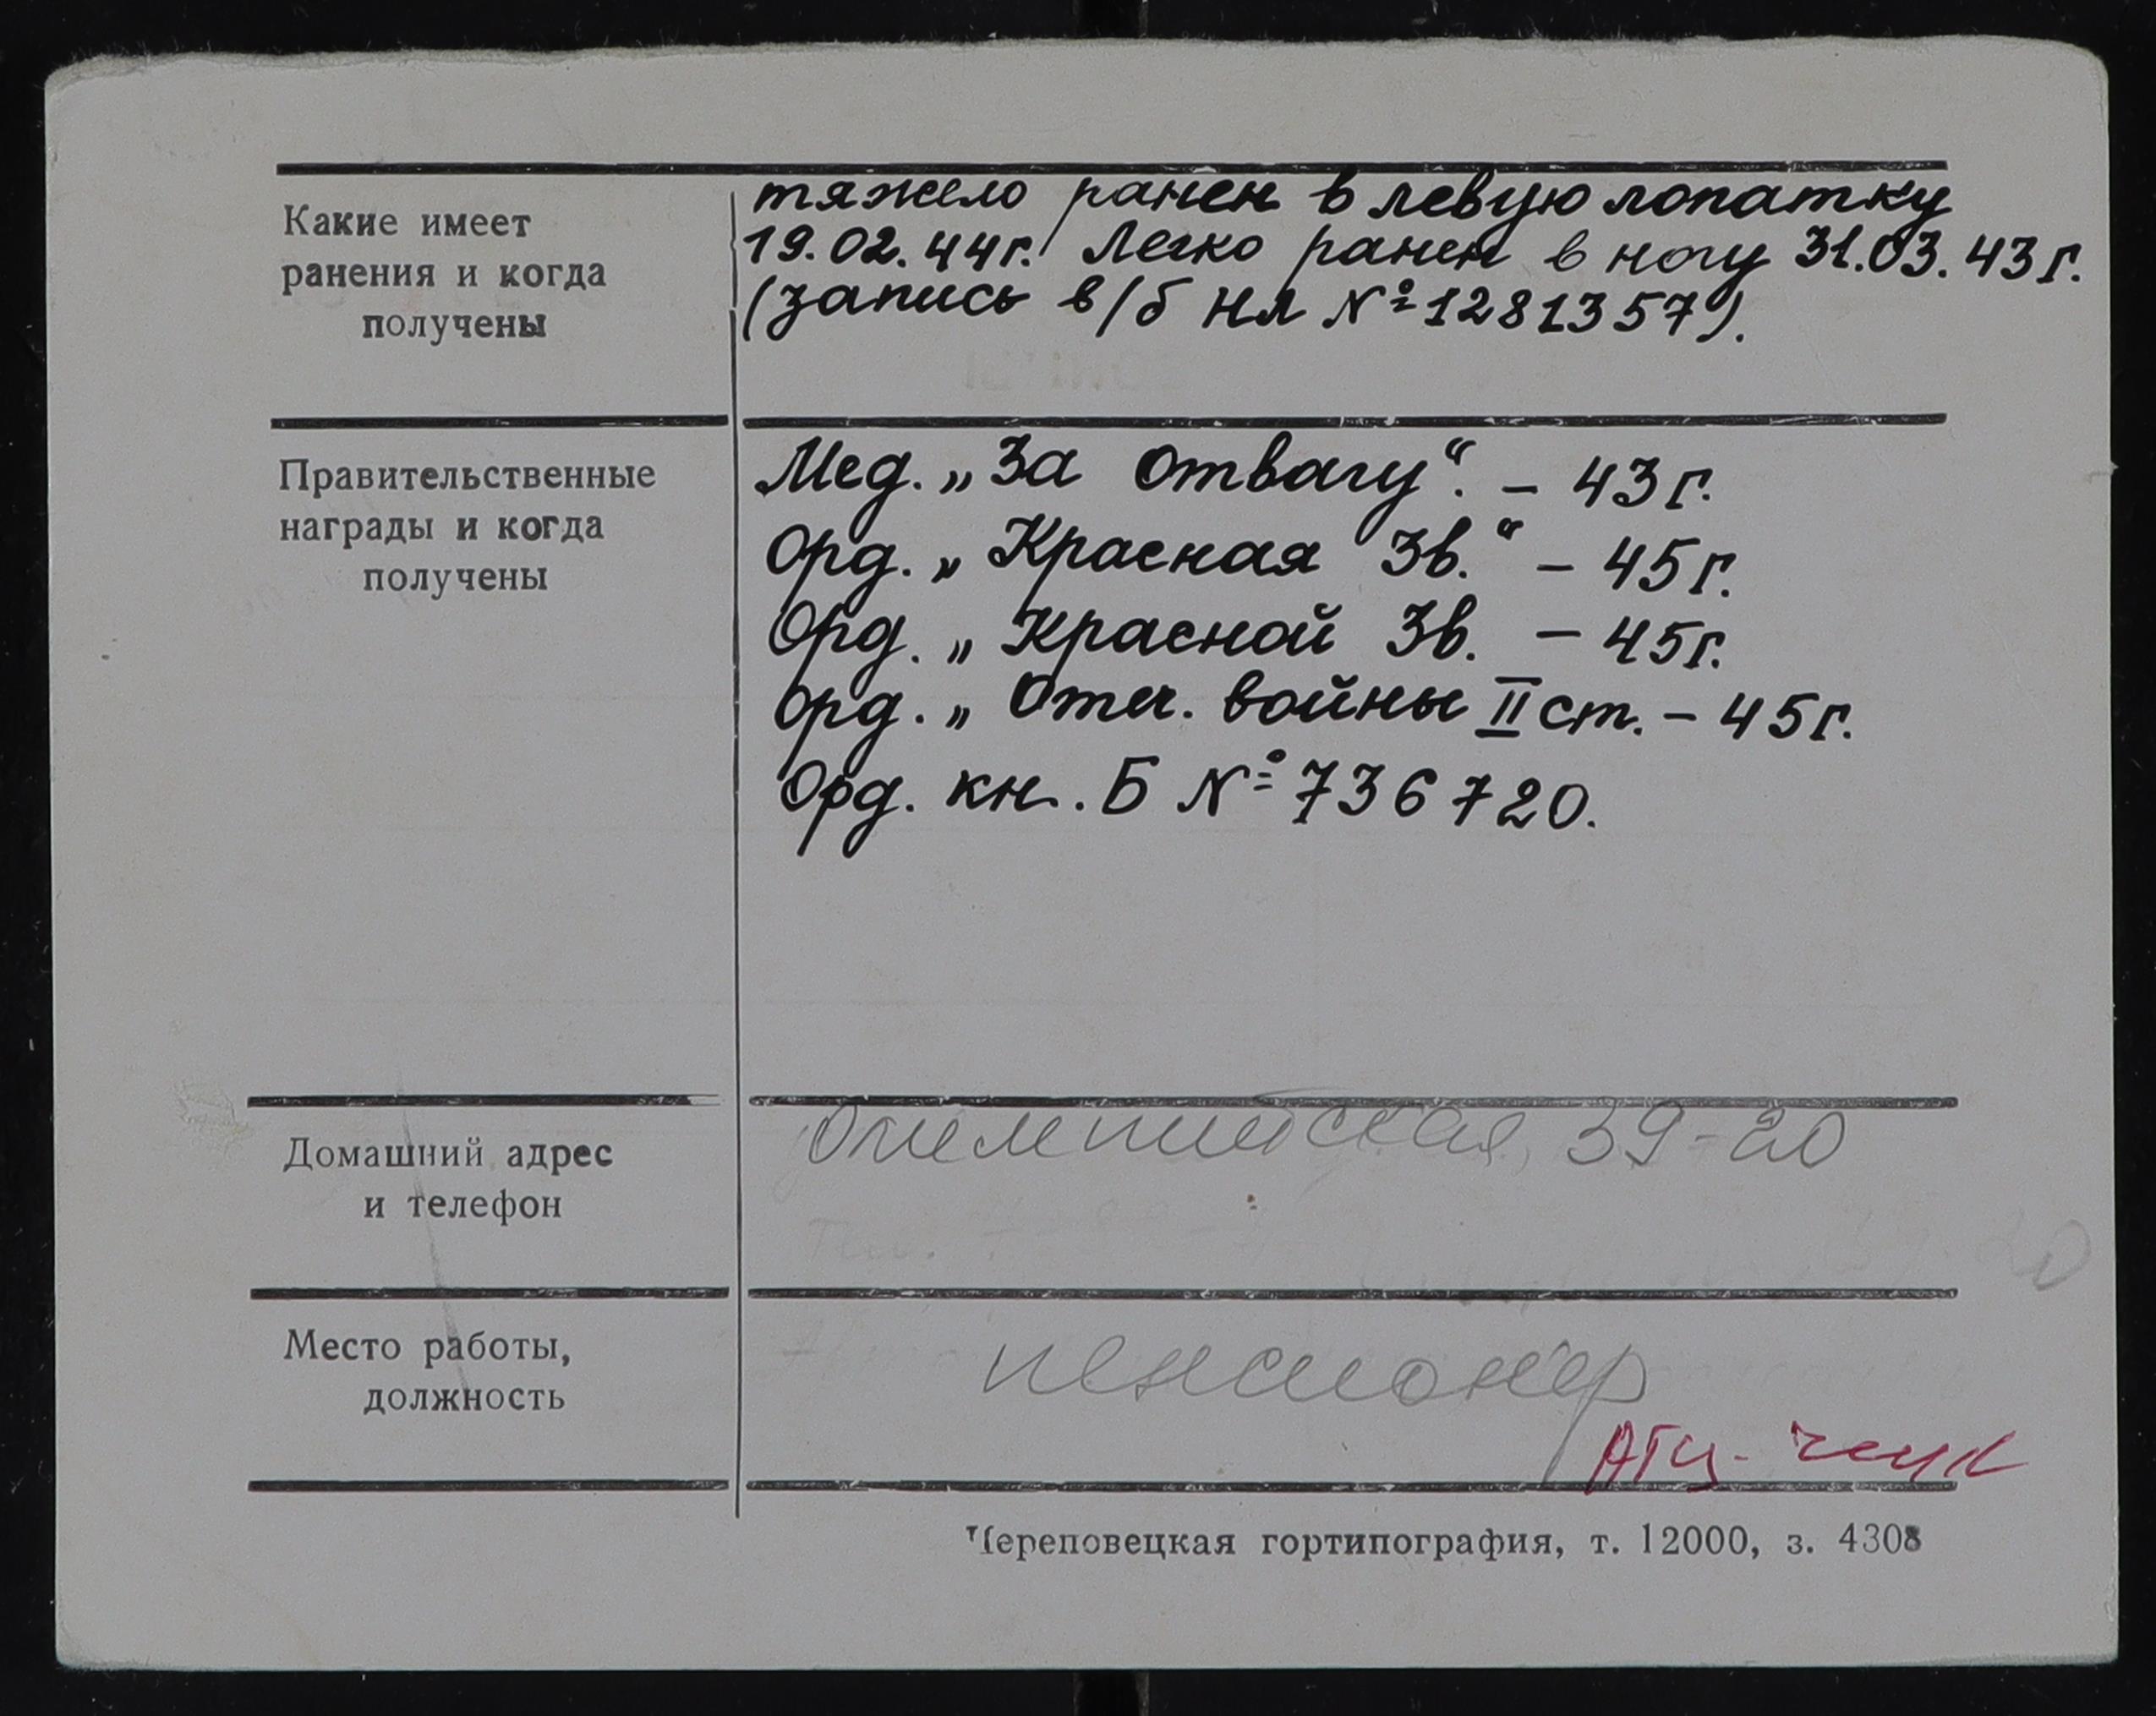 Какие имеет
ранения и когда
получены
тяжело ранен в левую лопатку
19.02.44г. Легко ранен в ногу 31.03.43г.
(запись в/б НЛ №1281357).
Правительственные
награды и когда
получены
Мед. „За отвагу“. – 43г.
Орд. „Красная Зв.“ – 45г.
Орд. „Красной Зв. – 45г.
Орд. „Отеч. войны II ст. – 45г.
Орд. кн. Б №736720.
Домашний адрес
и телефон
Олимпийская, 39-20
Тел.
20
Место работы,
должность
пенсионер
АТЦ-
Череповецкая гортипография, т. 12000, з. 4308